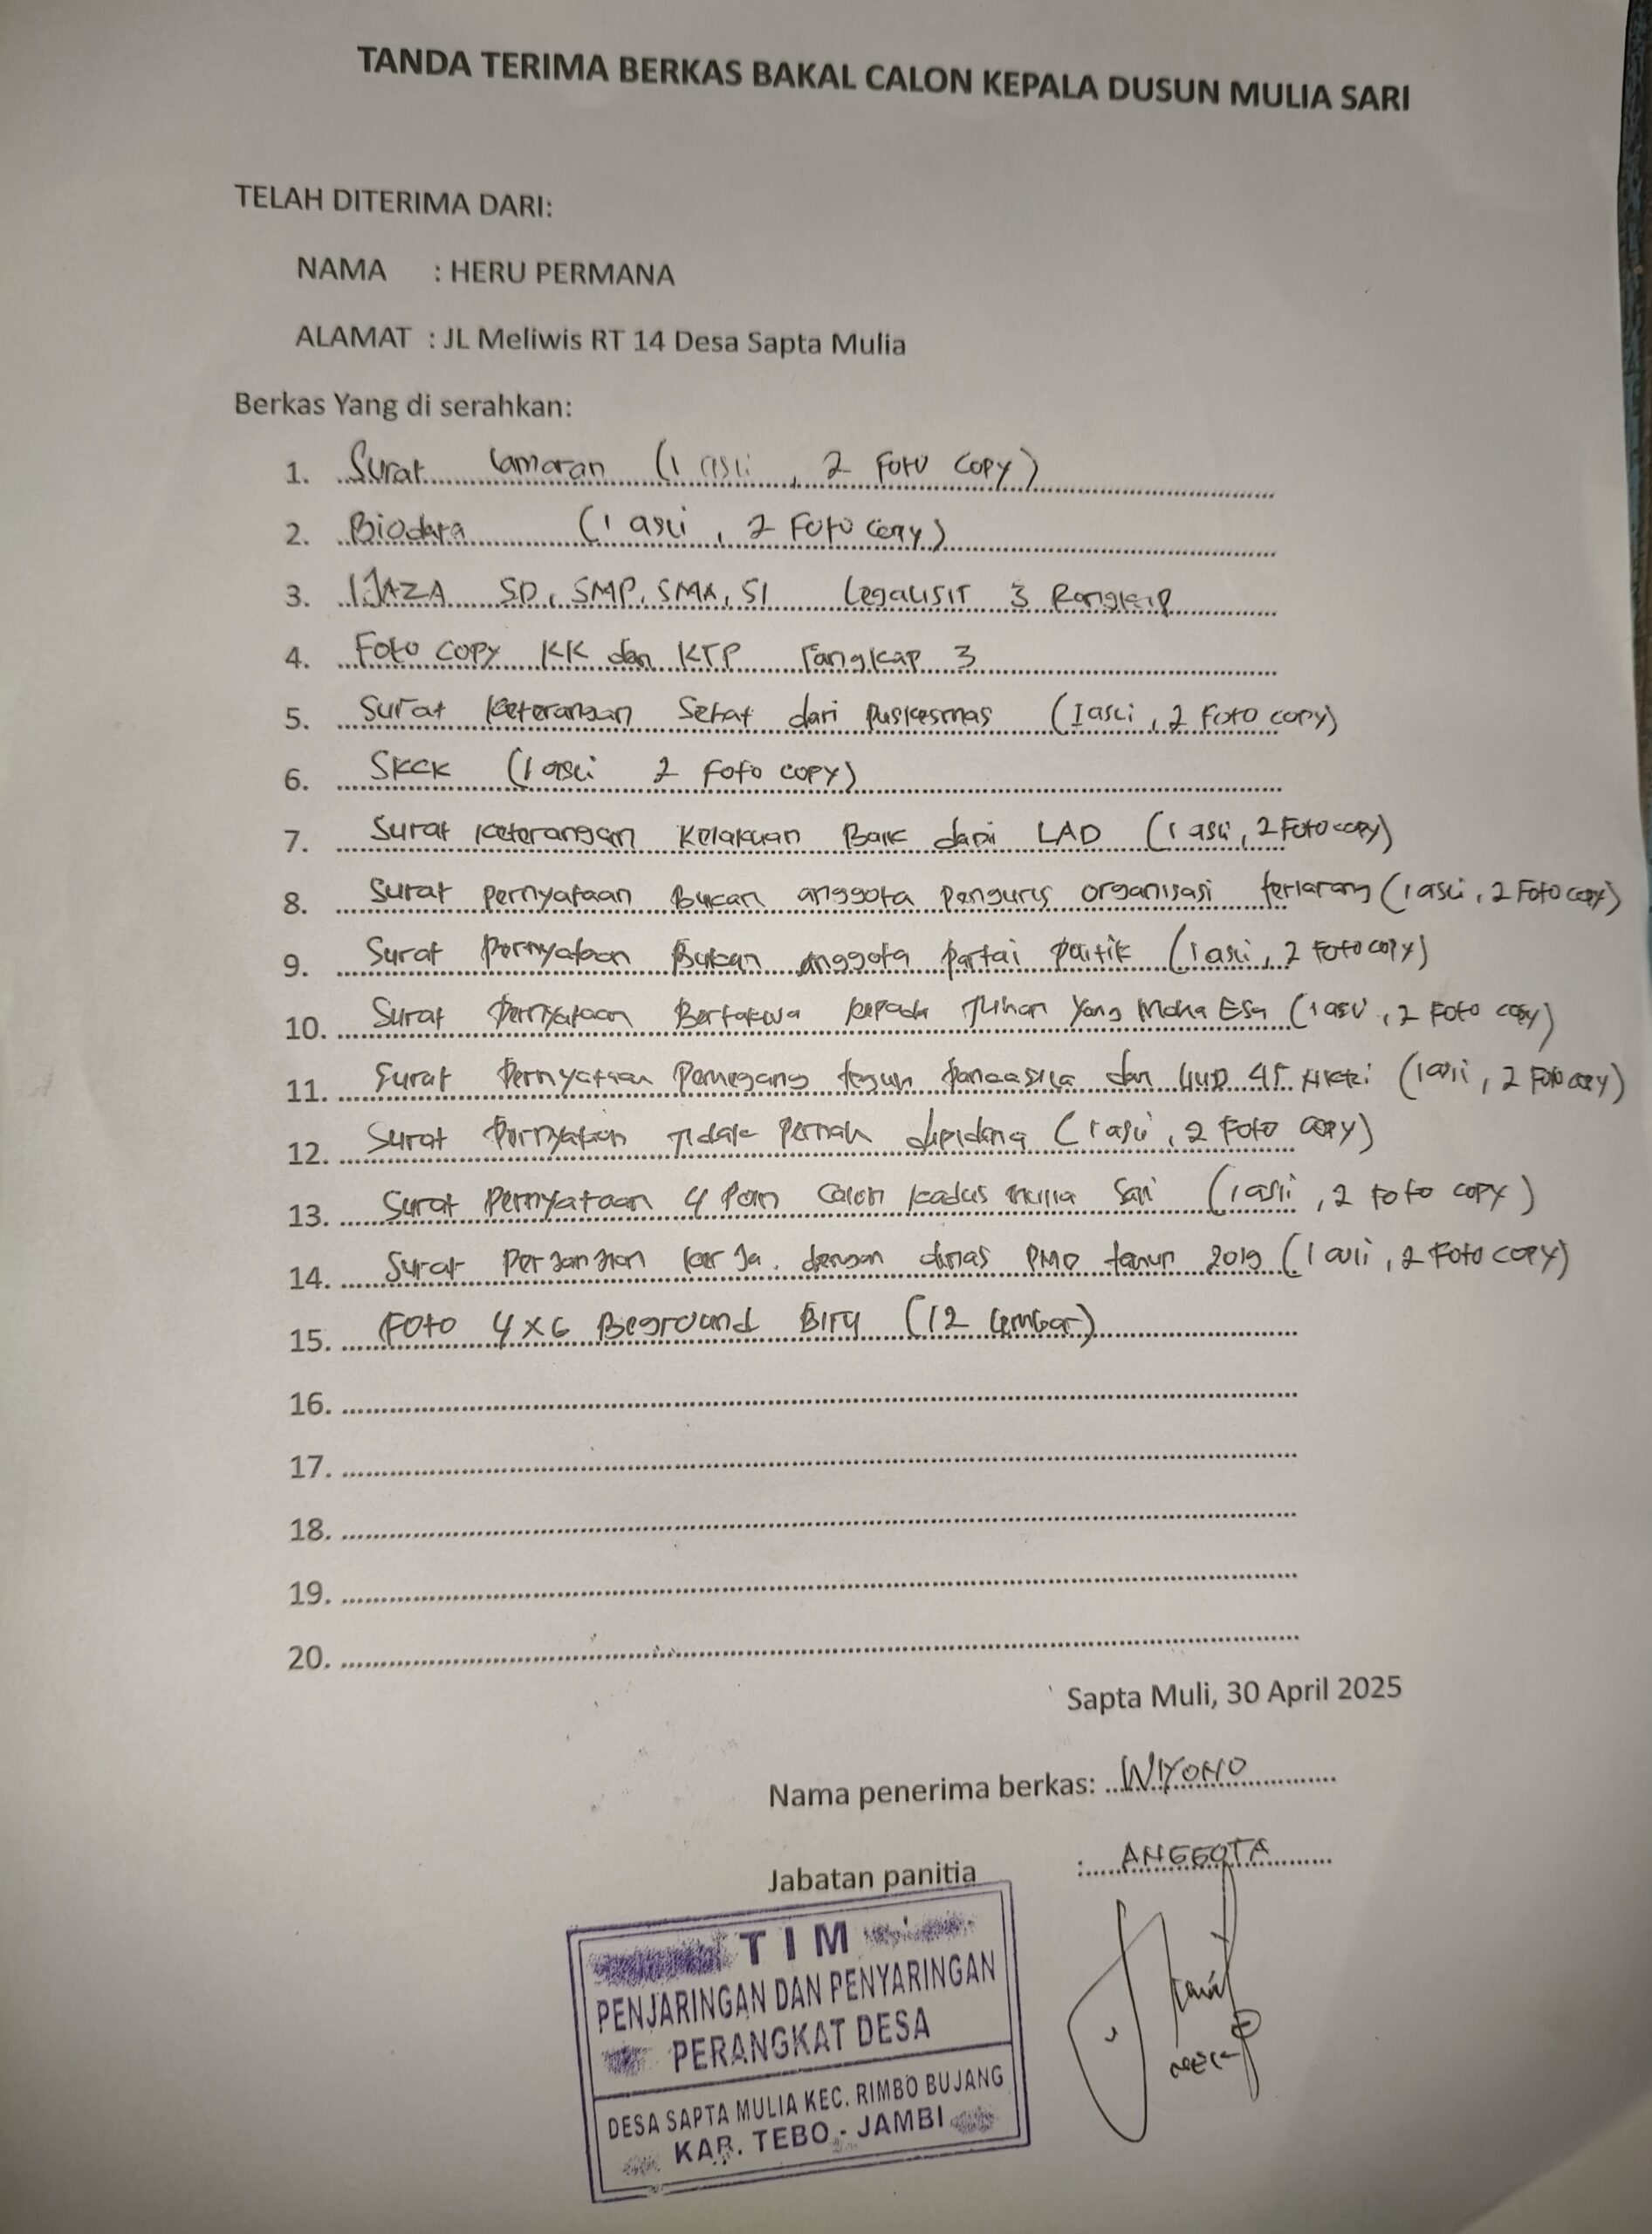 TANDA TERIMA BERKAS BAKAL CALON KEPALA DUSUN MULIA SARI
TELAH DITERIMA DARI:
NAMA : HERU PERMANA
ALAMAT : JL Meliwis RT 14 Desa Sapta Mulia
Berkas Yang di serahkan:
1. Surat lamaran (1 asli, 2 Foto Copy)
2. Biodata (1 asli, 2 Foto Copy)
3. IJAZA SD, SMP, SMA, S1 Legalisir 3 Rangkap
4. Foto Copy KK dan KTP rangkap 3
5. Surat keterangan Sehat dari Puskesmas (1 asli, 2 Foto copy)
6. SKCK (1 asli 2 Foto copy)
7. Surat keterangan Kelakuan Baik dari LAD (1 asli, 2 Foto copy)
8. Surat pernyataan Bukan anggota Pengurus organisasi terlarang (1 asli, 2 Foto copy)
9. Surat Pernyataan Bukan anggota Partai Politik (1 asli, 2 Foto copy)
10. Surat Pernyataan Bertakwa kepada Tuhan Yang Maha Esa (1 asli, 2 Foto copy)
11. Surat Pernyataan Pemegang teguh Pancasila dan UUD 45 NKRI (1 asli, 2 Foto copy)
12. Surat Pernyataan Tidak Pernah dipidana (1 asli, 2 Foto copy)
13. Surat Pernyataan 4 Poin Calon kadus mulia Sari (1 asli, 2 Foto copy)
14. Surat Perjanjian kerja. dengan dinas PMD tahun 2019 (1 asli, 2 Foto copy)
15. Foto 4x6 Beground Biru (12 lembar)
16.
17.
18.
19.
20.
Sapta Muli, 30 April 2025
Nama penerima berkas: WIYONO
Jabatan panitia : ANGGOTA
TIM
PENJARINGAN DAN PENYARINGAN
PERANGKAT DESA
DESA SAPTA MULIA KEC. RIMBO BUJANG
KAB. TEBO - JAMBI